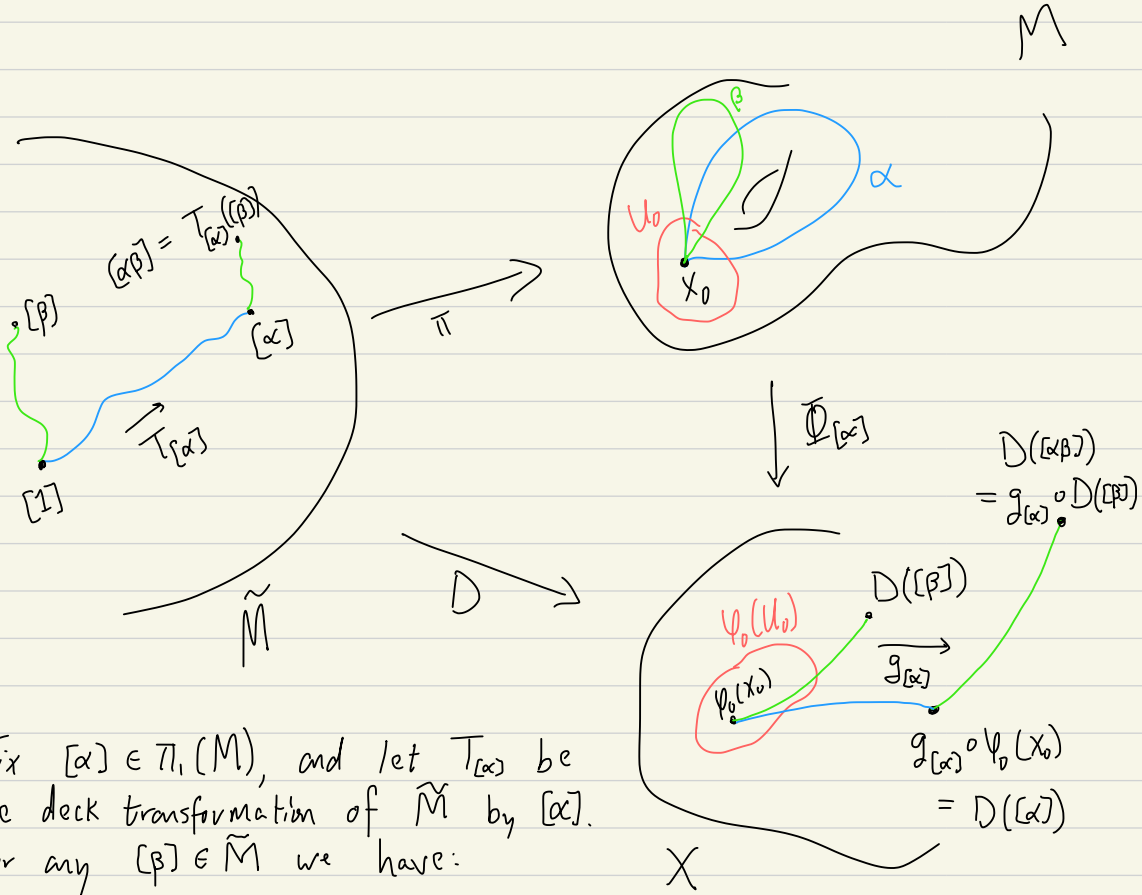 M
β
α
U₀
x₀
[αβ] = T_[α]([β])
[β]
[α]
π
T_[α]
[1]
Φ_[α]
D([αβ])
= g_[α] ∘ D([β])
D
M̃
D([β])
φ₀(U₀)
g_[α]
φ₀(x₀)
g_[α] ∘ φ₀(x₀)
= D([α])
X
ix [α] ∈ π₁(M), and let T_[α] be
e deck transformation of M̃ by [α].
r any [β] ∈ M̃ we have: